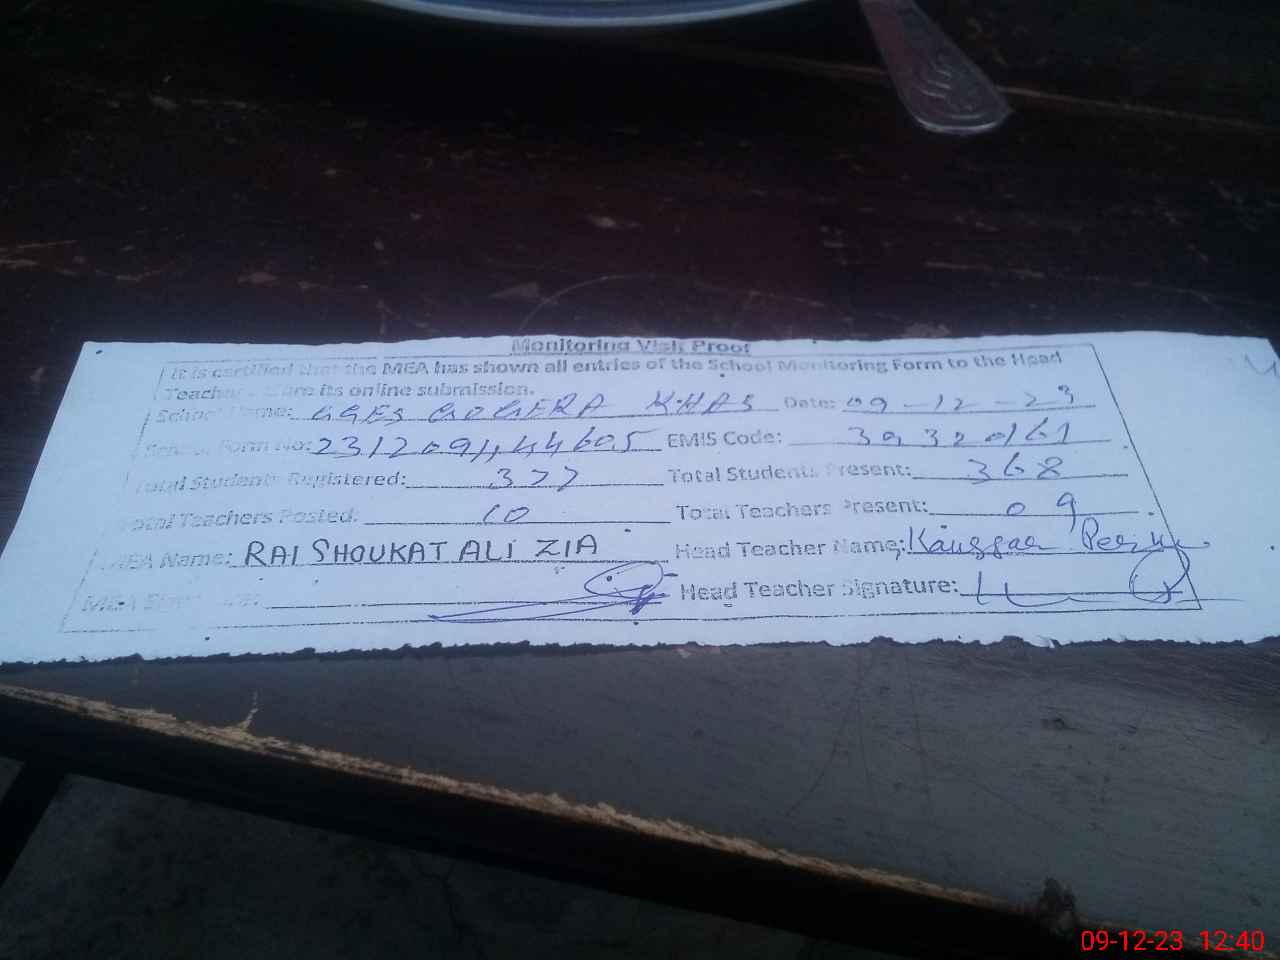 Monitoring Visit Proof
It is certified that the MEA has shown all entries of the School Monitoring Form to the Head
Teacher before its online submission.
School Name: GGES GOGERA KHAS Date: 09-12-23
School Form No: EMIS Code: 39320161
Total Students Registered: 377 Total Students Present: 368
Total Teachers Posted: 10 Total Teachers Present: 09
MEA Name: RAI SHOUKAT ALI ZIA Head Teacher Name:
MEA Signature: Head Teacher Signature:
09-12-23 12:40